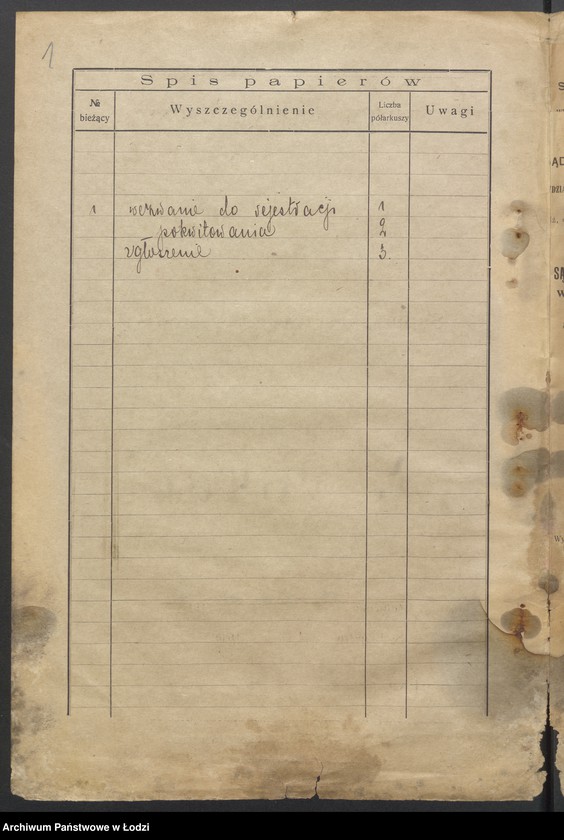 1
Spis papierów
№ bieżący
Wyszczególnienie
Liczba półarkuszy
Uwagi
1 wezwanie do rejestracji 1
pokwitowania 2
zgłoszenie 3.
Archiwum Państwowe w Łodzi